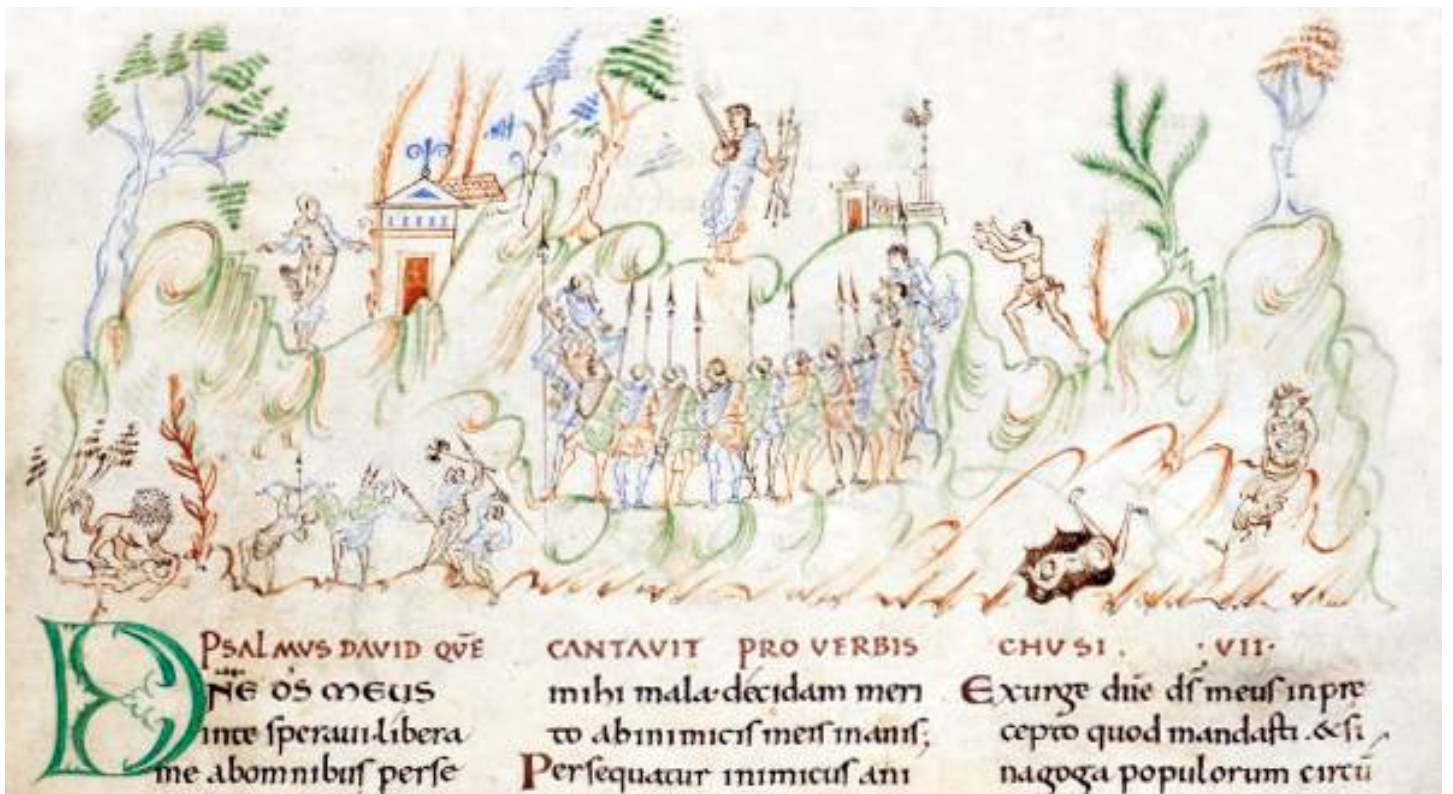 PSALMVS DAVID QVĒ CANTAVIT PRO VERBIS CHUSI . · VII ·
DN̄E DS̄ MEUS
inte speraui libera
me abomnibus perse
mihi mala· decidam meri
to abinimicis meis inanis;
Persequatur inimicus ani
Exurge dn̄e ds̄ meus inpre
cepto quod mandasti. & si
nagoga populorum circū